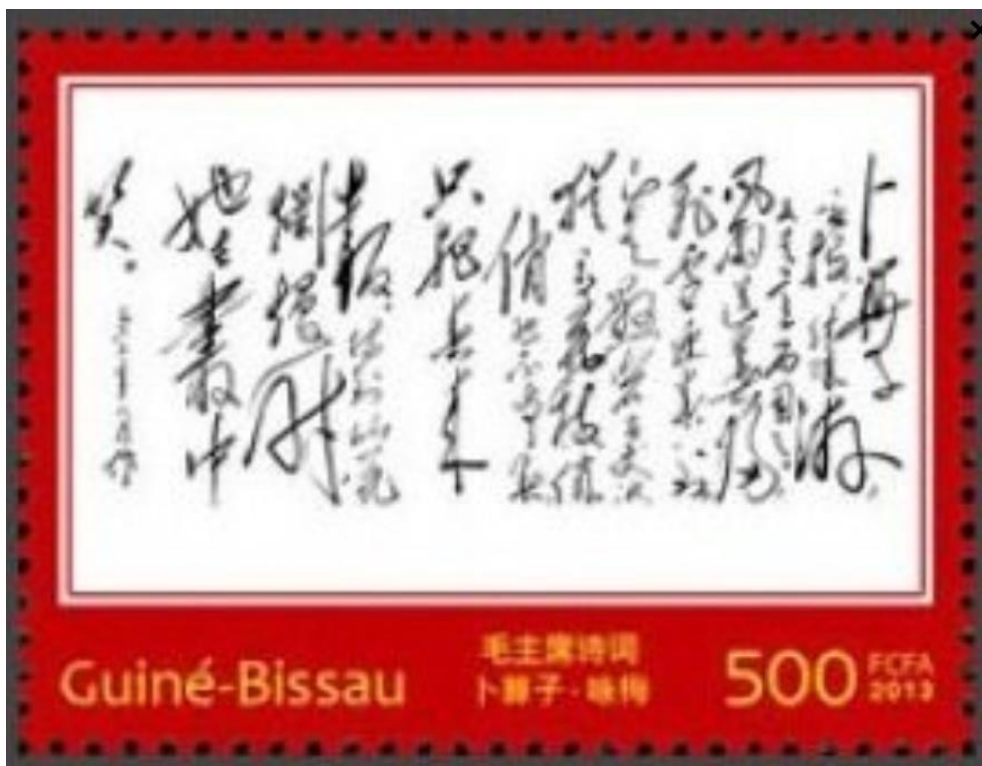 卜算子
风雨送春归
飞雪迎春到
已是悬崖百丈冰
犹有花枝俏
俏也不争春
只把春来
报 待到山花
烂漫时
她在丛中
笑。
Guiné-Bissau
毛主席诗词
卜算子·咏梅
500 FCFA
2013